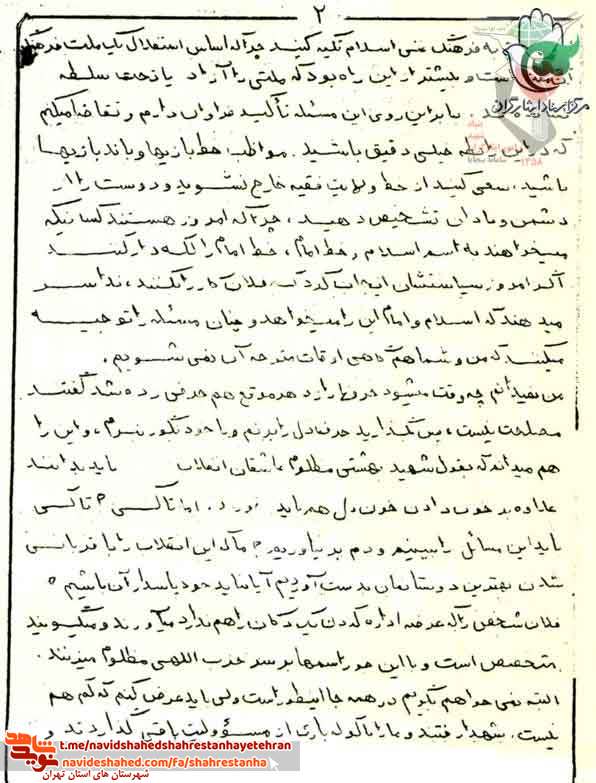 ۲
به فرهنگ غنی اسلام تکیه کنید چرا که اساس استقلال یک ملت فرهنگ
آن است و بیشتر از این راه بود که ملتی را آزاد یا تحت سلطه
بنابراین روی این مسئله تأکید فراوان دارم و تقاضا میکنم
که در این رابطه خیلی دقیق باشید. مواظب خط بازیها و باند بازیها
باشید، سعی کنید از خط ولایت فقیه خارج نشوید و دوست را از
دشمن و نادان تشخیص دهید، چرا که امروز هستند کسانیکه
میخواهند به اسم اسلام و خط امام، خط امام را لکه دار کنند
اگر امروز سیاستشان ایجاب کرد که فلان کار را نکنند، ندا سر
میدهند که اسلام و امام این را میخواهد و چنان مسئله را توجیه
میکنند که من و شما هم گاهی اوقات متوجه آن نمی شویم.
من نمیدانم چه وقت میشود حرفها را زد هر موقع هم حرفی زده شد گفتند
مصلحت نیست، پس بگذارید حرف دل را بزنم و با خود بگور نبرم، و این را
هم میدانم که بقول شهید بهشتی مظلوم عاشقان انقلاب باید بدانند
علاوه بر خون دادن خون دل هم باید خورد. اما تا کی؟ تا کی
باید این مسائل را ببینیم و دم بر نیاوریم؟ ما که این انقلاب را با قربانی
شدن بهترین دوستانمان بدست آوردیم آیا نباید خود پاسدار آن باشیم؟
فلان شخص را که عرضه اداره کردن یک دکان را هم ندارد میآورند و میگویند
متخصص است و با این جور اسمها بر سر حزب اللهی مظلوم میزنند.
البته نمی خواهم بگویم در همه جا اینطور است ولی باید عرض کنم که کم هم
نیست. شهدا رفتند و ما را با کوله باری از مسؤولیت باقی گذاردند و
مرکز اسناد ایثارگران
۱۳۵۸
t.me/navidshahedshahrestanhayetehran
navideshahed.com/fa/shahrestanha
شهرستان های استان تهران